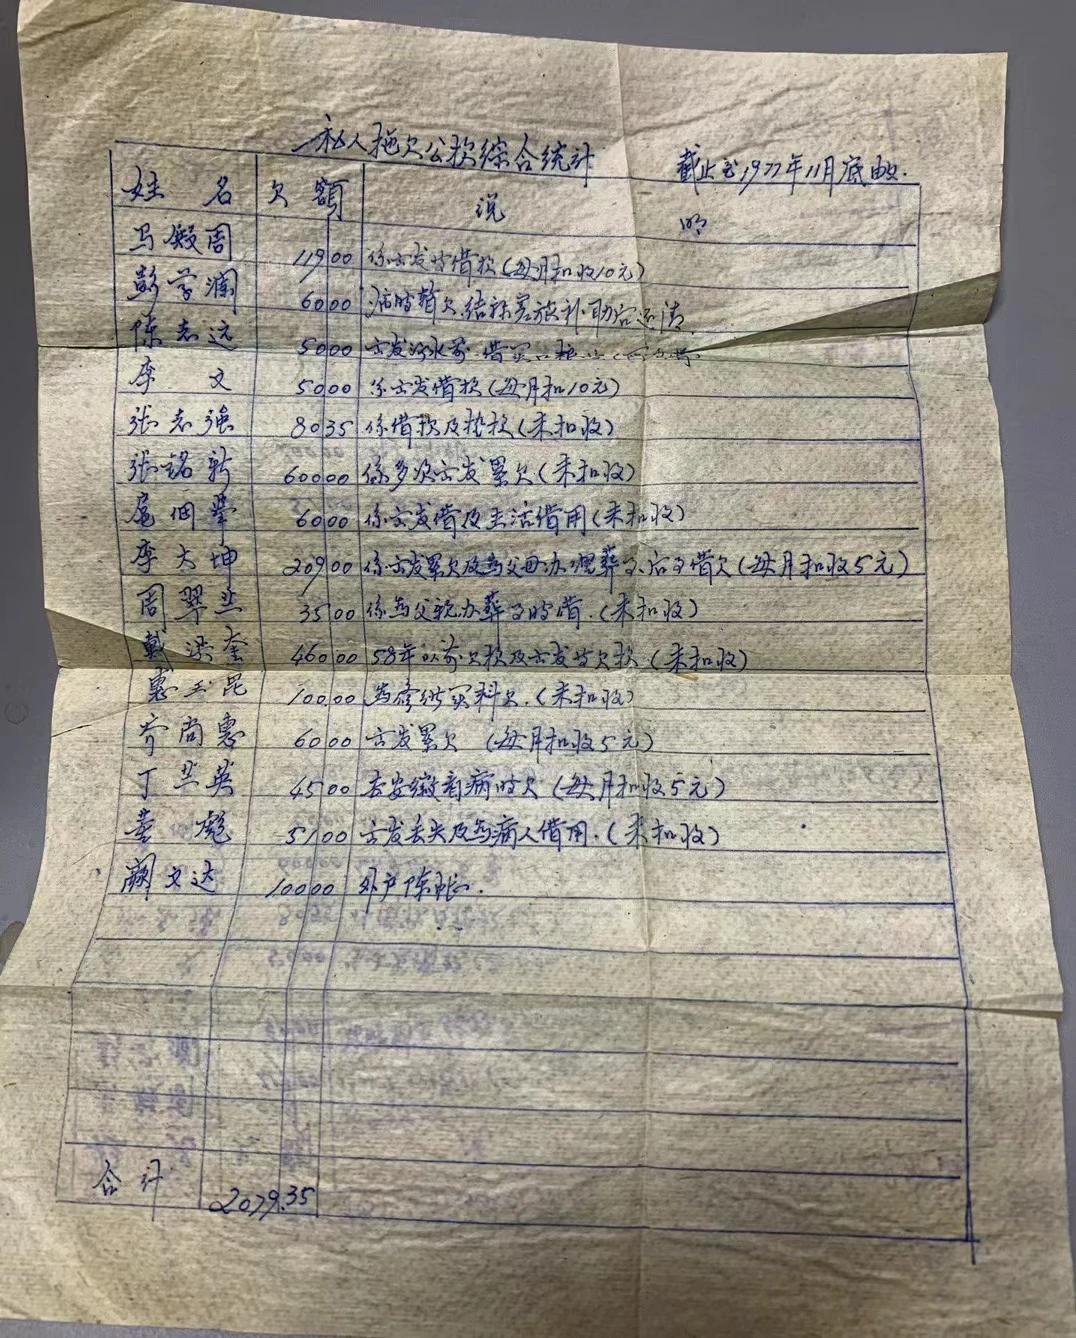 私人拖欠公款综合统计
截止至1977年11月底
姓名 欠额 说明
马殿周 119 00 係出发时借款(每月扣收10元)
彭学澜 60 00 治时暂欠.结补完旅补助后还清
陈志远 50 00 出发
李文 50 00 係出发借款(每月扣10元)
张志强 80 35 係借款及垫款(未扣收)
张铭新 600 00 係多次出发累欠(未扣收)
60 00 係出发借及生活借用(未扣收)
李大坤 209 00 係出发累欠及为父母办理葬事后又借欠(每月扣收5元)
周翠兰 35 00 係为父亲办葬事时借.(未扣收)
戴洪奎 460 00 58年以前欠款及出发时欠款(未扣收)
惠玉昆 100 00 为修 买料欠.(未扣收)
齐尚惠 60 00 出发累欠 (每月扣收5元)
丁兰英 45 00 去安徽看病时欠(每月扣收5元)
董彪 51 00 出发丢失及为病人借用.(未扣收)
阚文达 100 00 外户陈账.
合计 2079.35